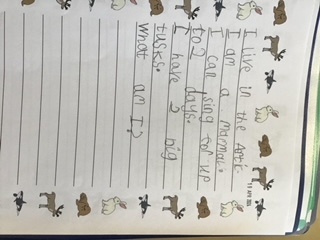 I live in the Artic
I am a mammal.
I can sing for up
to 2 days.
I have 2 big
tusks.
What am I?